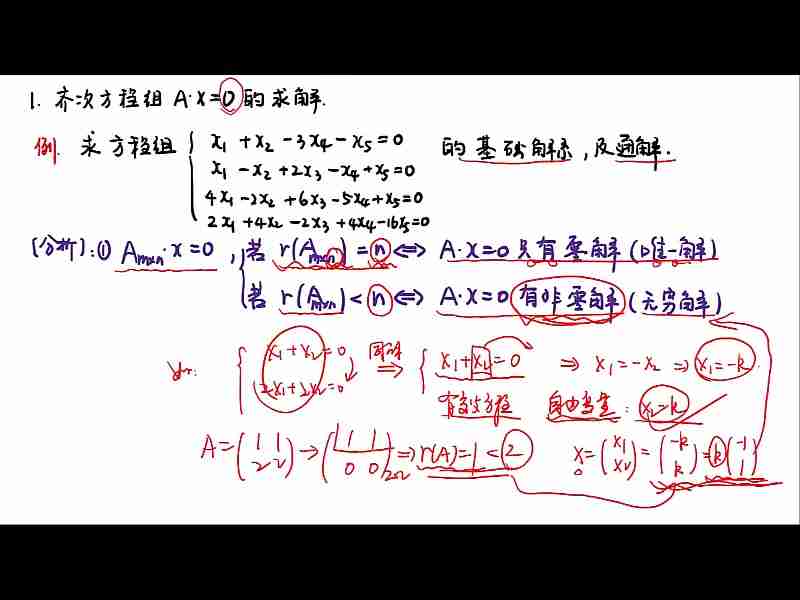 1. 齐次方程组 A·X=0 的求解.
例. 求方程组 { x₁ +x₂ -3x₄ -x₅=0 的基础解系, 及通解.
x₁ -x₂ +2x₃ -x₄+x₅=0
4x₁ -2x₂ +6x₃ -5x₄+x₅=0
2x₁ +4x₂ -2x₃ +4x₄-16x₅=0
[分析]: ① Aₘₓₙ·x=0, 若 r(Aₘₓₙ)=n ⇔ A·X=0 只有零解 (唯一解)
若 r(Aₘₓₙ)<n ⇔ A·X=0 有非零解 (无穷解)
x₁+x₂=0 同解 ⇒ { x₁+x₂=0 ⇒ x₁=-x₂ ⇒ x₁=-k
2x₁+2x₂=0 有效方程 自由变量: x₂=k
A=(1 1 2 2)→(1 1 0 0)₂ₓ₂ ⇒ r(A)=1<2 X=(x₁ x₂)=(-k k)=k(-1 1)